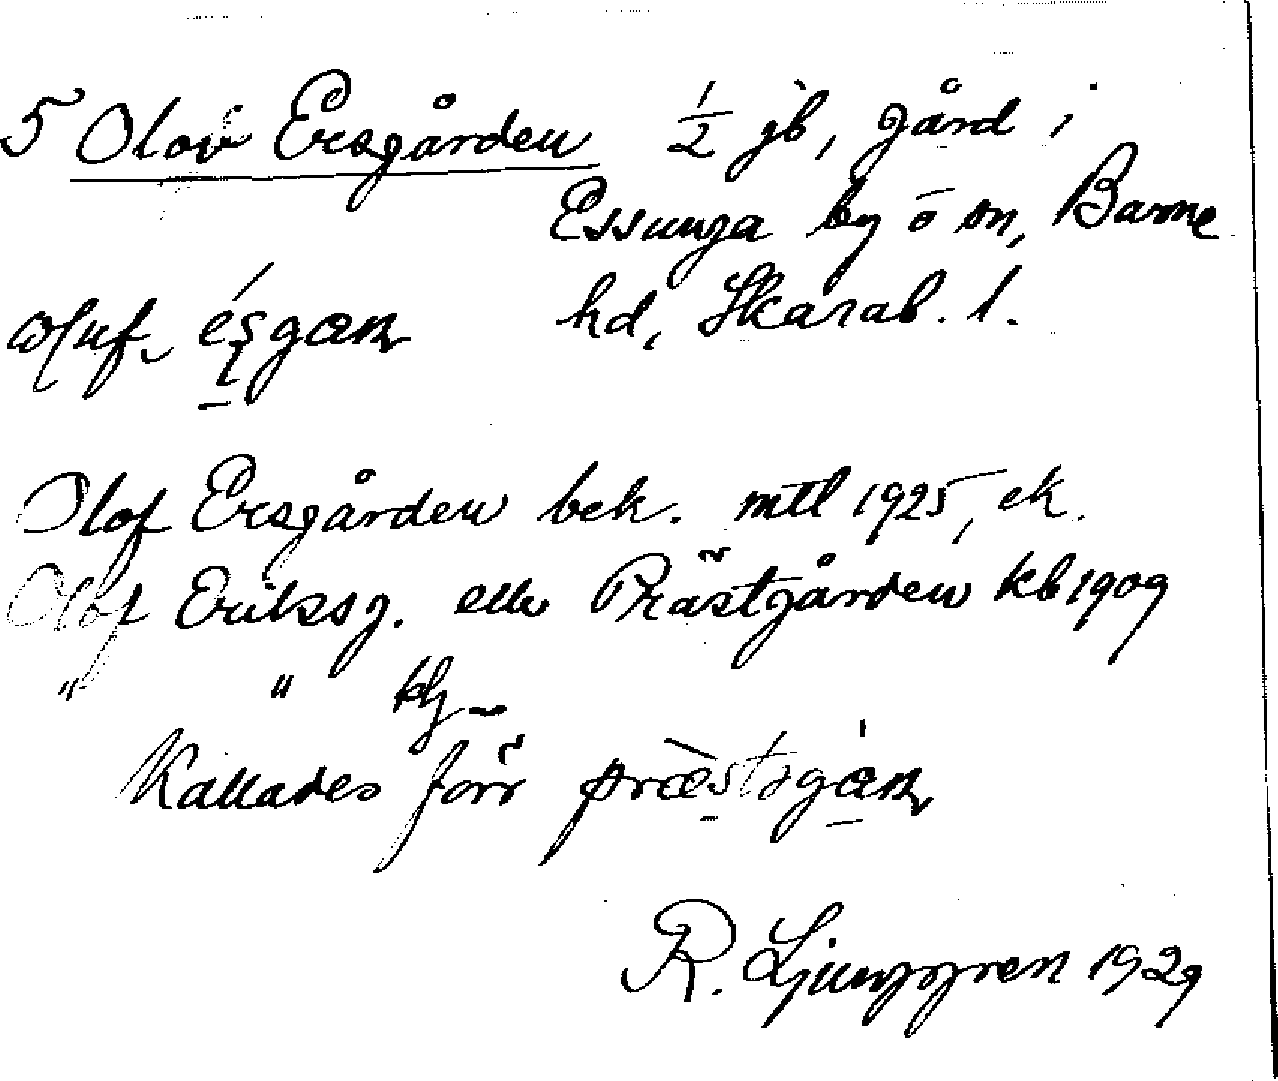 5 Olov Ersgården ½ jb, gård i
Essunga by o sn, Barne
hd, Skarab. l.
Olof Ersgården bek. mtl 1925, ek.
Olof Eriksg. elle Prästgården kb 1909
" "
Kallades förr præstsgɑ̈n
R. Ljunggren 1929